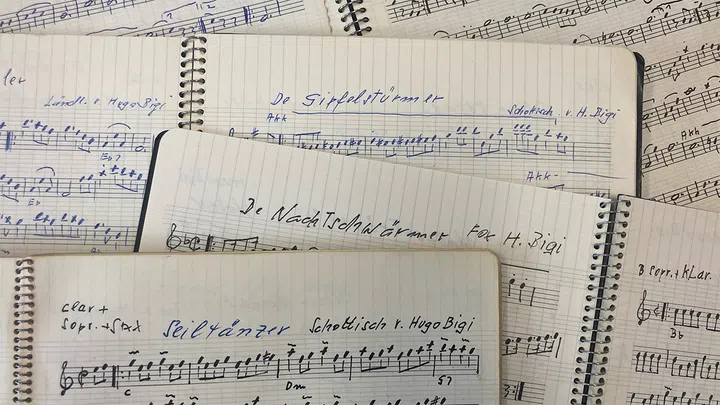 ler
Ländl. v. Hugo Bigi
Eb7
De Gipfelstürmer
Schottisch v. H. Bigi
Akk
Akk
Akk
De Nachtschwärmer Fox H. Bigi
B Sopr. + Klar.
Bb
clar +
Sopr. + Sax
Seiltänzer Schottisch v. Hugo Bigi
C
Dm
G7